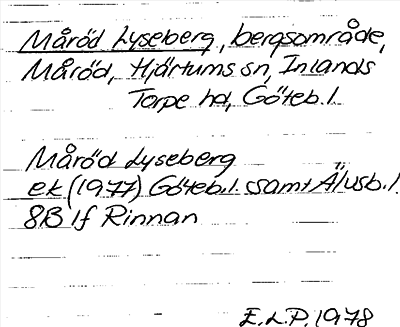 Måröd Lyseberg, bergsområde,
Måröd, Hjärtums sn, Inlands
Torpe hd, Göteb.l.
Måröd Lyseberg
ek (1977) Göteb.l. samt Älvsb.l
8B 1f Rinnan
E.L.P. 1978